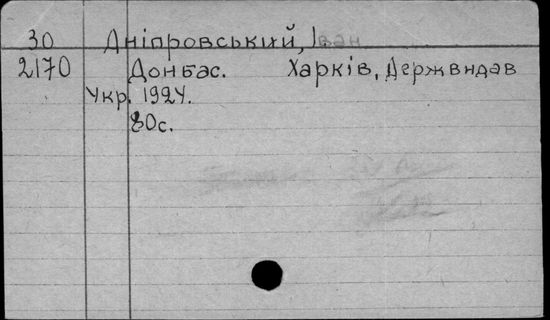 30 Дніпровський, Іван
2170 Донбас. Харків, Держвидав
Укр. 1924.
80с.